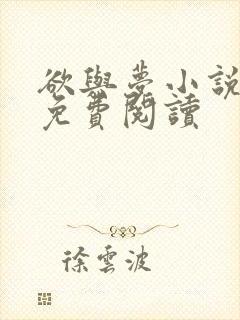 欲與夢小說
免費閱讀
徐雲波